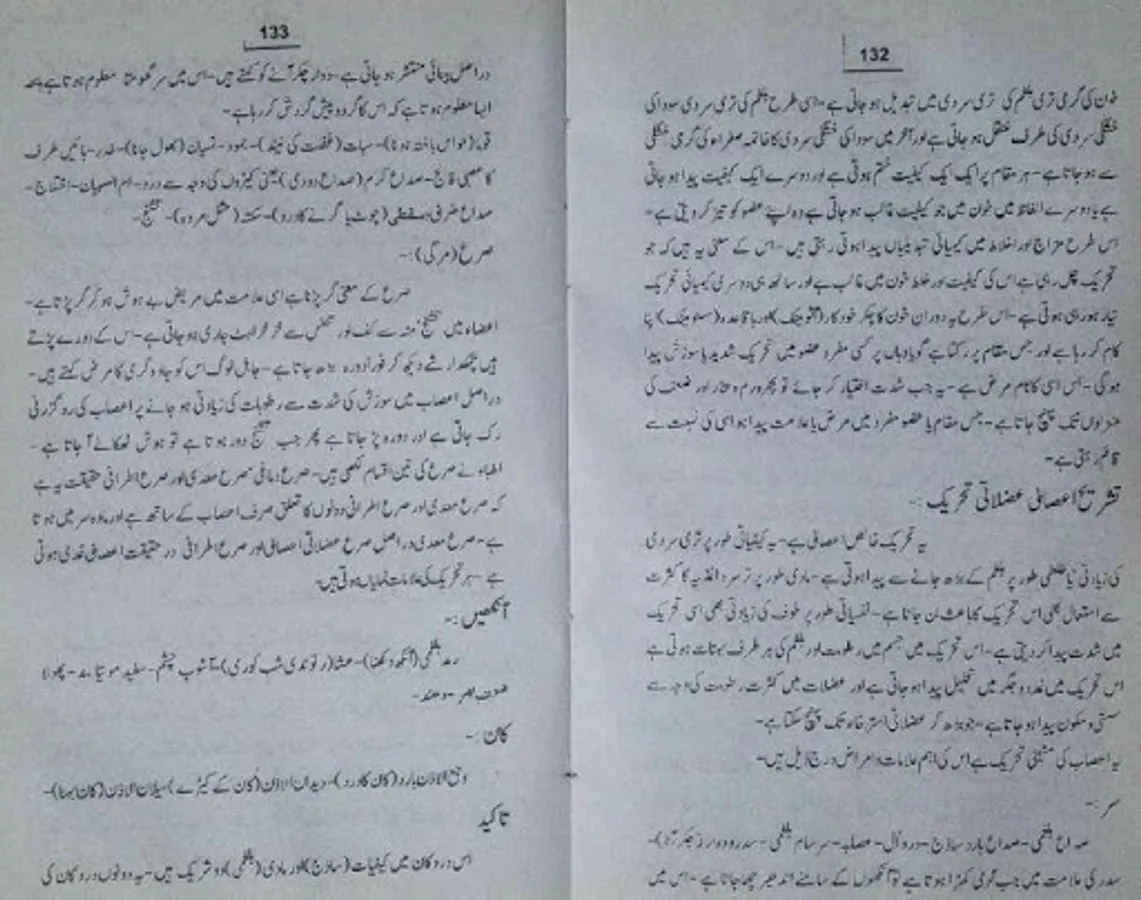 132
خون کی گرمی تری بلغم کی تری سردی میں تبدیل ہو جاتی ہے۔ اسی طرح بلغم کی تری سردی سودا کی
خشکی سردی کی طرف منتقل ہو جاتی ہے اور آخر میں سودا کی خشکی سردی کا خاتمہ صفراء کی گرمی خشکی
سے ہو جاتا ہے۔ ہر مقام پر ایک ایک کیفیت ختم ہوتی ہے اور دوسرے ایک کیفیت پیدا ہو جاتی
ہے یا دوسرے الفاظ میں خون میں جو کیفیت غالب ہو جاتی ہے وہ اپنے عضو کو تیز کر دیتی ہے۔
اس طرح مزاج اور اخلاط میں کیمیائی تبدیلیاں پیدا ہوتی رہتی ہیں۔ اس کے معنی یہ ہیں کہ جو
تحریک چل رہی ہے اس کی کیفیت اور خلط خون میں غالب ہے اور ساتھ ہی دوسری کیمیائی تحریک
تیار ہو رہی ہوتی ہے۔ اس طرح یہ دوران خون کا چکر خود کار (آٹومیٹک) اور باقاعدہ (سسٹومیٹک) اپنا
کام کر رہا ہے اور جس مقام پر رکتا ہے گویا وہاں پر کسی مفرد عضو میں تحریک شدید یا سوزش پیدا
ہوگی۔ بس اسی کا نام مرض ہے۔ یہ جب شدت اختیار کر جائے تو پھر ورم و بخار اور ضعف کی
منزلوں تک پہنچ جاتا ہے۔ جس مقام یا عضو مفرد میں مرض یا علامت پیدا ہو اسی کی نسبت سے
قائم رہتی ہے۔
تشریح اعصابی عضلاتی تحریک :۔
یہ تحریک خالص اعصابی ہے۔ یہ کیفیاتی طور پر تری سردی
کی زیادتی یا خلطی طور پر بلغم کے بڑھ جانے سے پیدا ہوتی ہے۔ مادی طور پر تر سرد اغذیہ کا کثرت
سے استعمال بھی اس تحریک کا باعث بن جاتا ہے۔ نفسیاتی طور پر خوف کی زیادتی بھی اسی تحریک
میں شدت پیدا کر دیتی ہے۔ اس تحریک میں جسم میں رطوبت اور بلغم کی ہر طرف بہتات ہوتی ہے
اس تحریک میں غدد و جگر میں تحلیل پیدا ہو جاتی ہے اور عضلات میں کثرت رطوبت کی وجہ سے
سستی و سکون پیدا ہو جاتا ہے، جو بڑھ کر عضلاتی استرخاء تک پہنچ سکتا ہے۔
یہ اعصاب کی مشینی تحریک ہے اس کی اہم علامات و امراض درج ذیل ہیں۔
سر :۔
صداع بلغمی۔ صداع بارد ساذج۔ عصابہ۔ سرسام بلغمی۔ سدر و دوار (چکر آنا)۔
سدر کی علامت میں جب آدمی کھڑا ہوتا ہے تو آنکھوں کے سامنے اندھیرا چھا جاتا ہے۔ اس میں
133
دراصل بینائی منتشر ہو جاتی ہے۔ دوار چکر آنے کو کہتے ہیں۔ اس میں سر گھومتا معلوم ہوتا ہے بلکہ
ایسا معلوم ہوتا ہے کہ اس کا گرد و پیش گردش کر رہا ہے۔
قوما (حواس باختہ ہونا)۔ سبات (غفلت کی نیند)۔ جمود۔ نسیان (بھول جانا)۔ خدر۔ بائیں طرف
کا عصبی فالج۔ صداع کرم (صداع دودی) یعنی کیڑوں کی وجہ سے درد۔ ام الصبیان۔ اختلاج۔
صداع ضربی و سقطی (چوٹ یا گرنے کا درد)۔ سکتہ (مثل مردہ)۔ تشنج۔
صرع (مرگی) :۔
صرع کے معنی گر پڑنا ہے اسی علامت میں مریض بے ہوش ہو کر گر پڑتا ہے۔
اعضاء میں تشنج‘ منہ سے کف اور تنفس سے خرخراہٹ جاری ہو جاتی ہے۔ اس کے دورے پڑتے
ہیں چمکدار شے دیکھ کر فوراً دورہ بڑھ جاتا ہے۔ جاہل لوگ اس کو جادوگری کا مرض کہتے ہیں۔
دراصل اعصاب میں سوزش کی شدت سے رطوبات کی زیادتی ہو جانے پر اعصاب کی رو گزرنی
رک جاتی ہے اور دورہ پڑ جاتا ہے پھر جب تشنج دور ہوتا ہے تو ہوش ٹھکانے آ جاتا ہے۔
اطباء نے صرع کی تین اقسام لکھی ہیں۔ صرع دماغی‘ صرع معدی اور صرع اطرافی حقیقت یہ ہے
کہ صرع معدی اور صرع اطرافی دونوں کا تعلق صرف اعصاب کے ساتھ ہے اور مادہ سر میں ہوتا
ہے۔ صرع معدی دراصل صرع عضلاتی اعصابی اور صرع اطرافی در حقیقت اعصابی غدی ہوتی
ہے۔ ہر تحریک کی علامات نمایاں ہوتی ہیں۔
آنکھیں :۔
رمد بلغمی (آنکھ دکھنا)۔ عشا (رتوندی شب کوری)۔ آشوب چشم۔ سفید موتیا بند۔ پھولا
ضعف بصر۔ دھند۔
کان :۔
وجع الاذن بارد (کان کا درد)۔ دیدان الاذن (کان کے کیڑے) سیلان الاذن (کان بہنا)۔
تاکید
اس درد کان میں کیفیات (ساذج) اور مادی (بلغمی) دو شریک ہیں۔ یہ دونوں درد کان کی